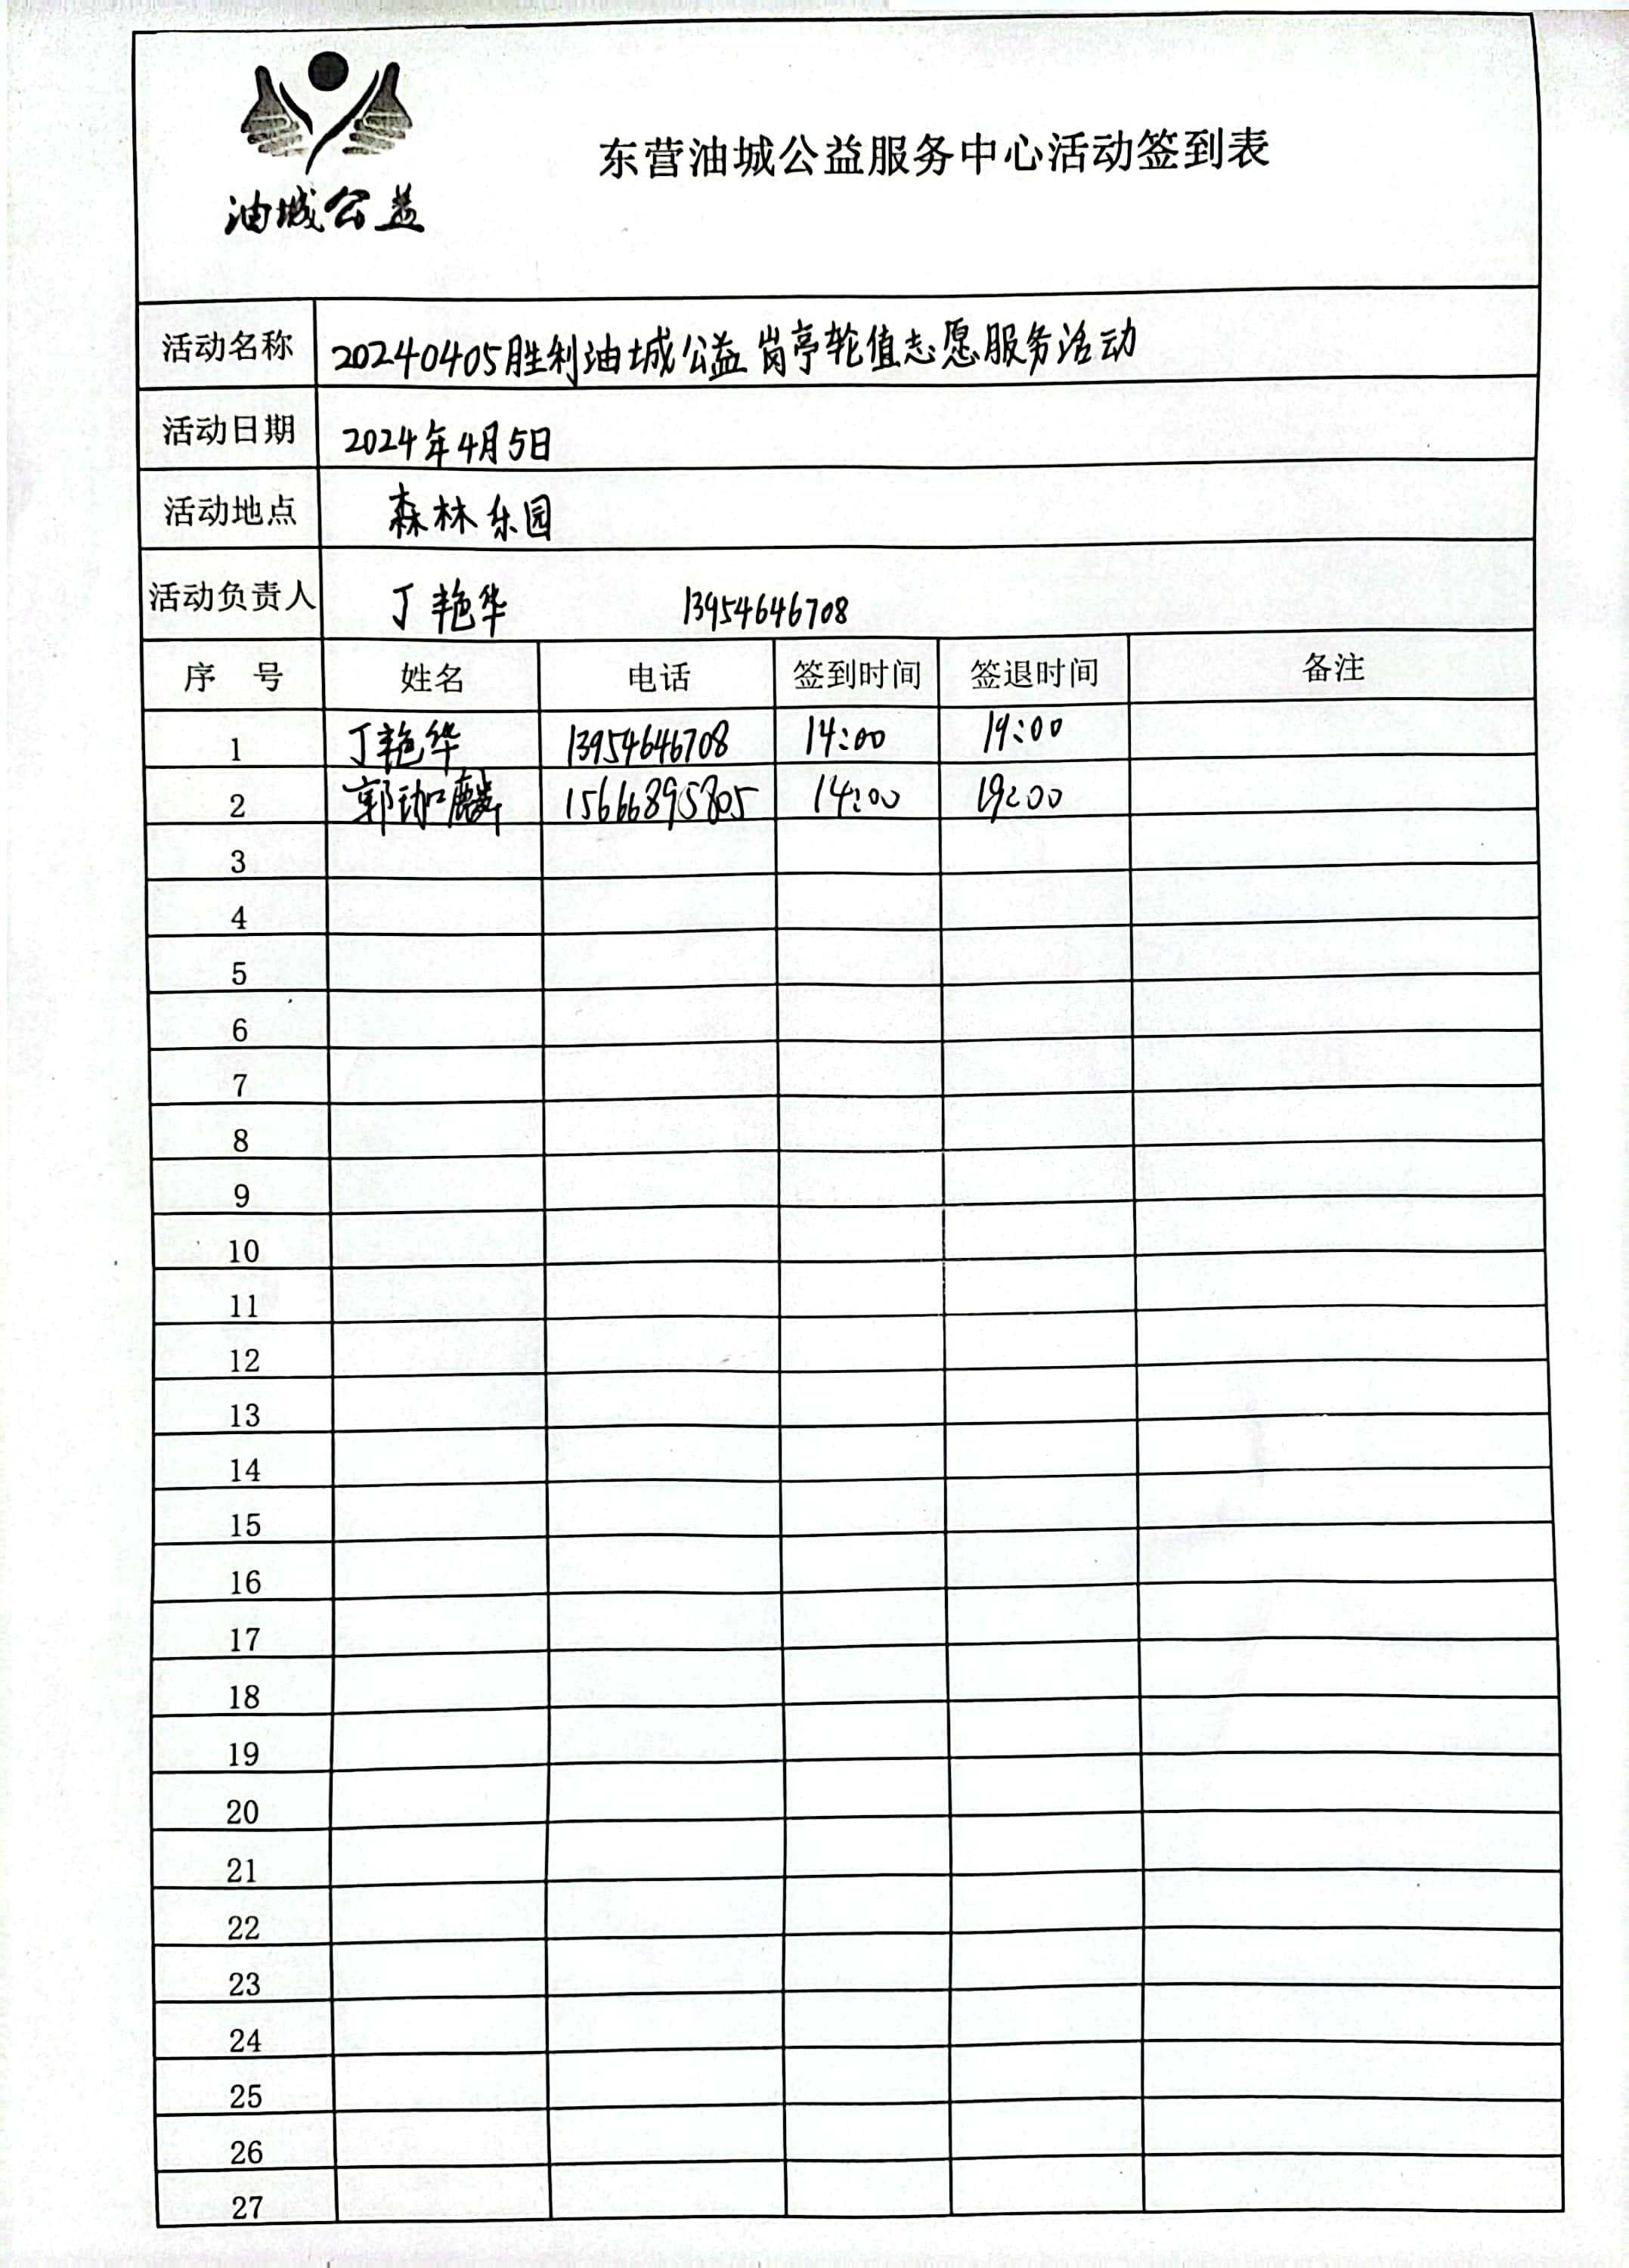 油城公益
东营油城公益服务中心活动签到表
活动名称 20240405胜利油城公益岗亭轮值志愿服务活动
活动日期 2024年4月5日
活动地点 森林乐园
活动负责人 丁艳华 13954646708
序 号 姓名 电话 签到时间 签退时间 备注
1 丁艳华 13954646708 14:00 19:00
2 郭珈麟 15666895805 14:00 19:00
3
4
5
6
7
8
9
10
11
12
13
14
15
16
17
18
19
20
21
22
23
24
25
26
27